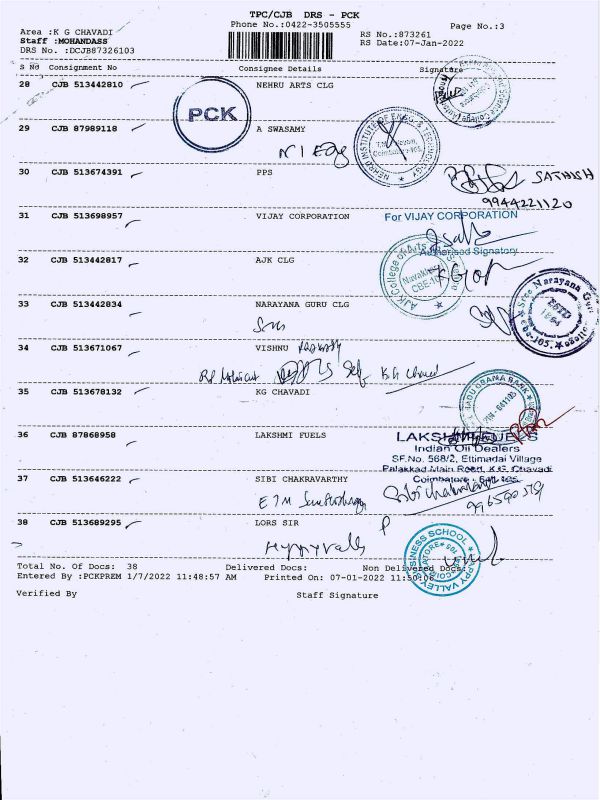 TPC/CJB DRS - PCK
Phone No.:0422-3505555
Page No.:3
Area :K G CHAVADI
Staff :MOHANDASS
DRS No. :DCJB87326103
RS No.:873261
RS Date:07-Jan-2022
S No Consignment No Consignee Details Signature
28 CJB 513442810 NEHRU ARTS CLG
PCK
29 CJB 87989118 A SWASAMY
NEHRU INSTITUTE OF ENGG & TECHNOLOGY
Coimbatore-105
30 CJB 513674391 PPS
SATHISH
9944221120
31 CJB 513698957 VIJAY CORPORATION
For VIJAY CORPORATION
Authorised Signatory
32 CJB 513442817 AJK CLG
AJK College of Arts
Navakkarai
CBE-105
33 CJB 513442834 NARAYANA GURU CLG
Sree Narayana Guru College
34 CJB 513671067 VISHNU
Self K G Chavad
35 CJB 513678132 KG CHAVADI
36 CJB 87868958 LAKSHMI FUELS
LAKSHMI FUELS
Indian Oil Dealers
SF.No. 568/2, Ettimadai Village
Palakkad Main Road, K.G. Chavadi
Coimbatore - 641 105
37 CJB 513646222 SIBI CHAKRAVARTHY
Sibi Chakravarthy
38 CJB 513689295 LORS SIR
Happy valley
HAPPY VALLEY BUSINESS SCHOOL
COIMBATORE
Total No. Of Docs: 38 Delivered Docs: Non Delivered Docs:
Entered By :PCKPREM 1/7/2022 11:48:57 AM Printed On: 07-01-2022 11:50:06
Verified By Staff Signature